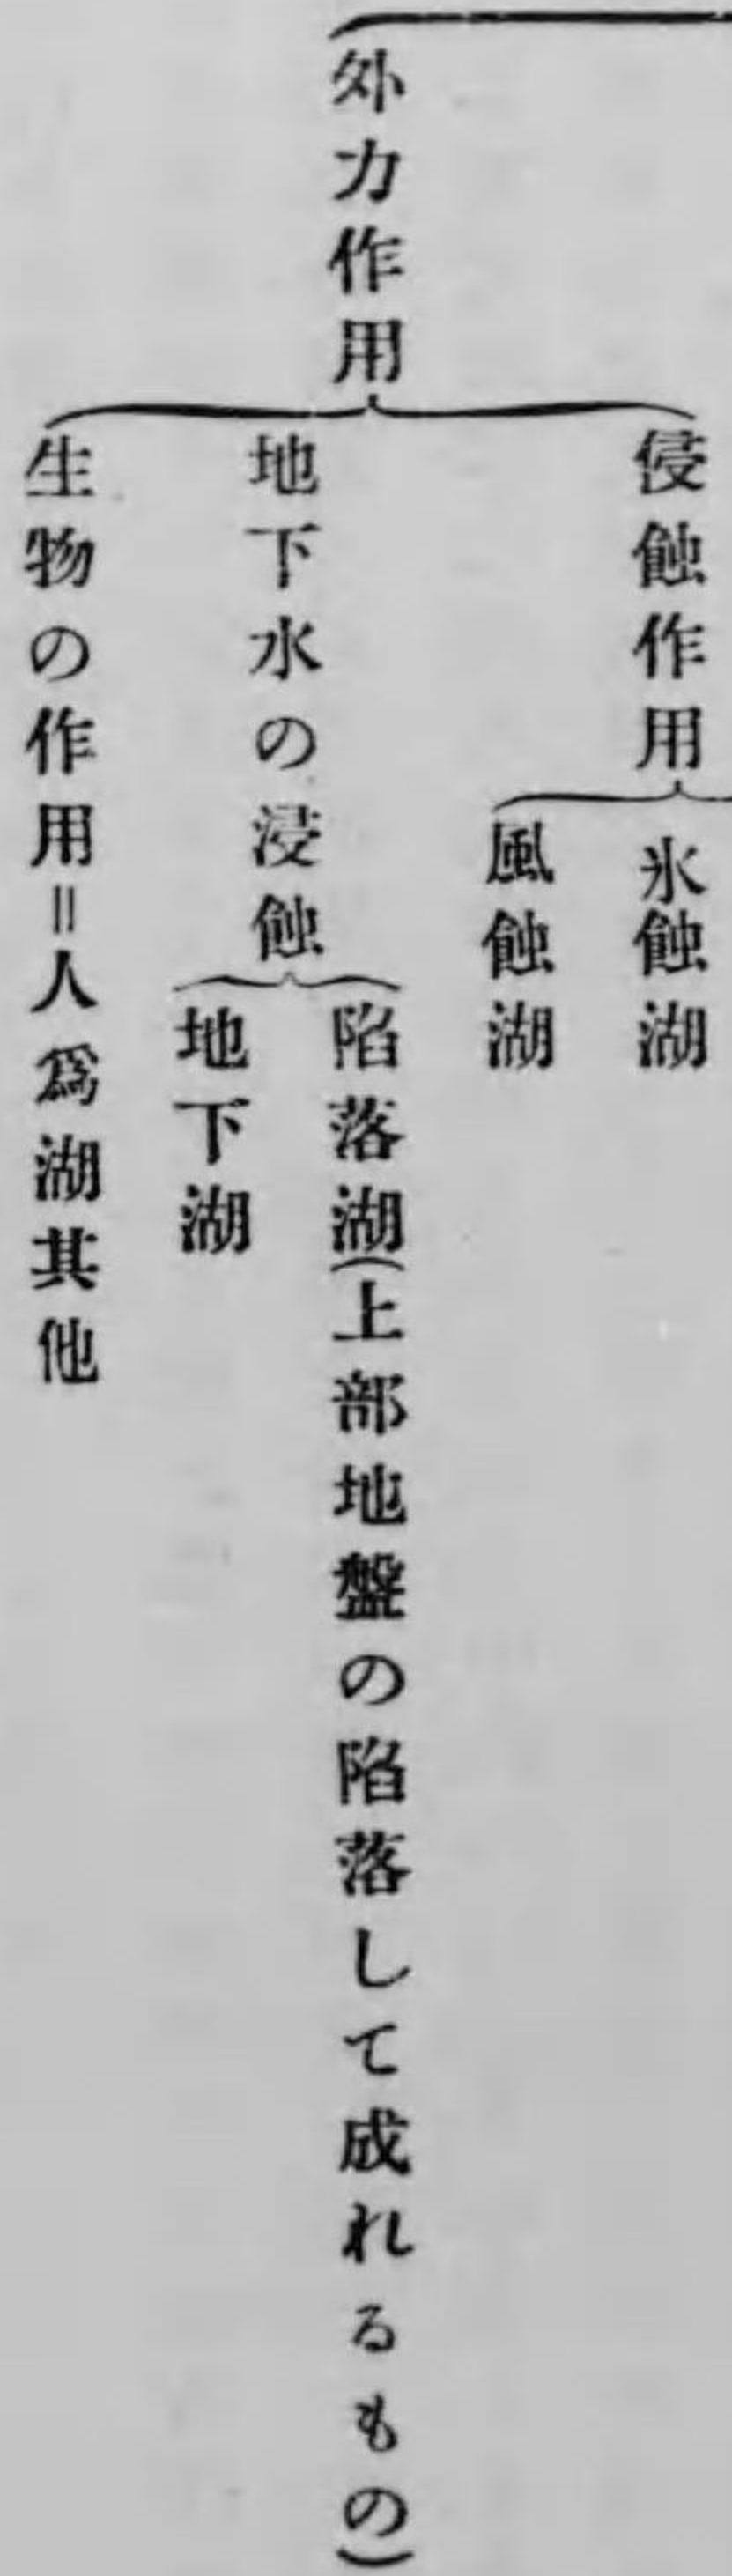 外力作用
侵蝕作用
氷蝕湖
風蝕湖
地下水の浸蝕
陷落湖(上部地盤の陷落して成れるもの)
地下湖
生物の作用=人爲湖其他